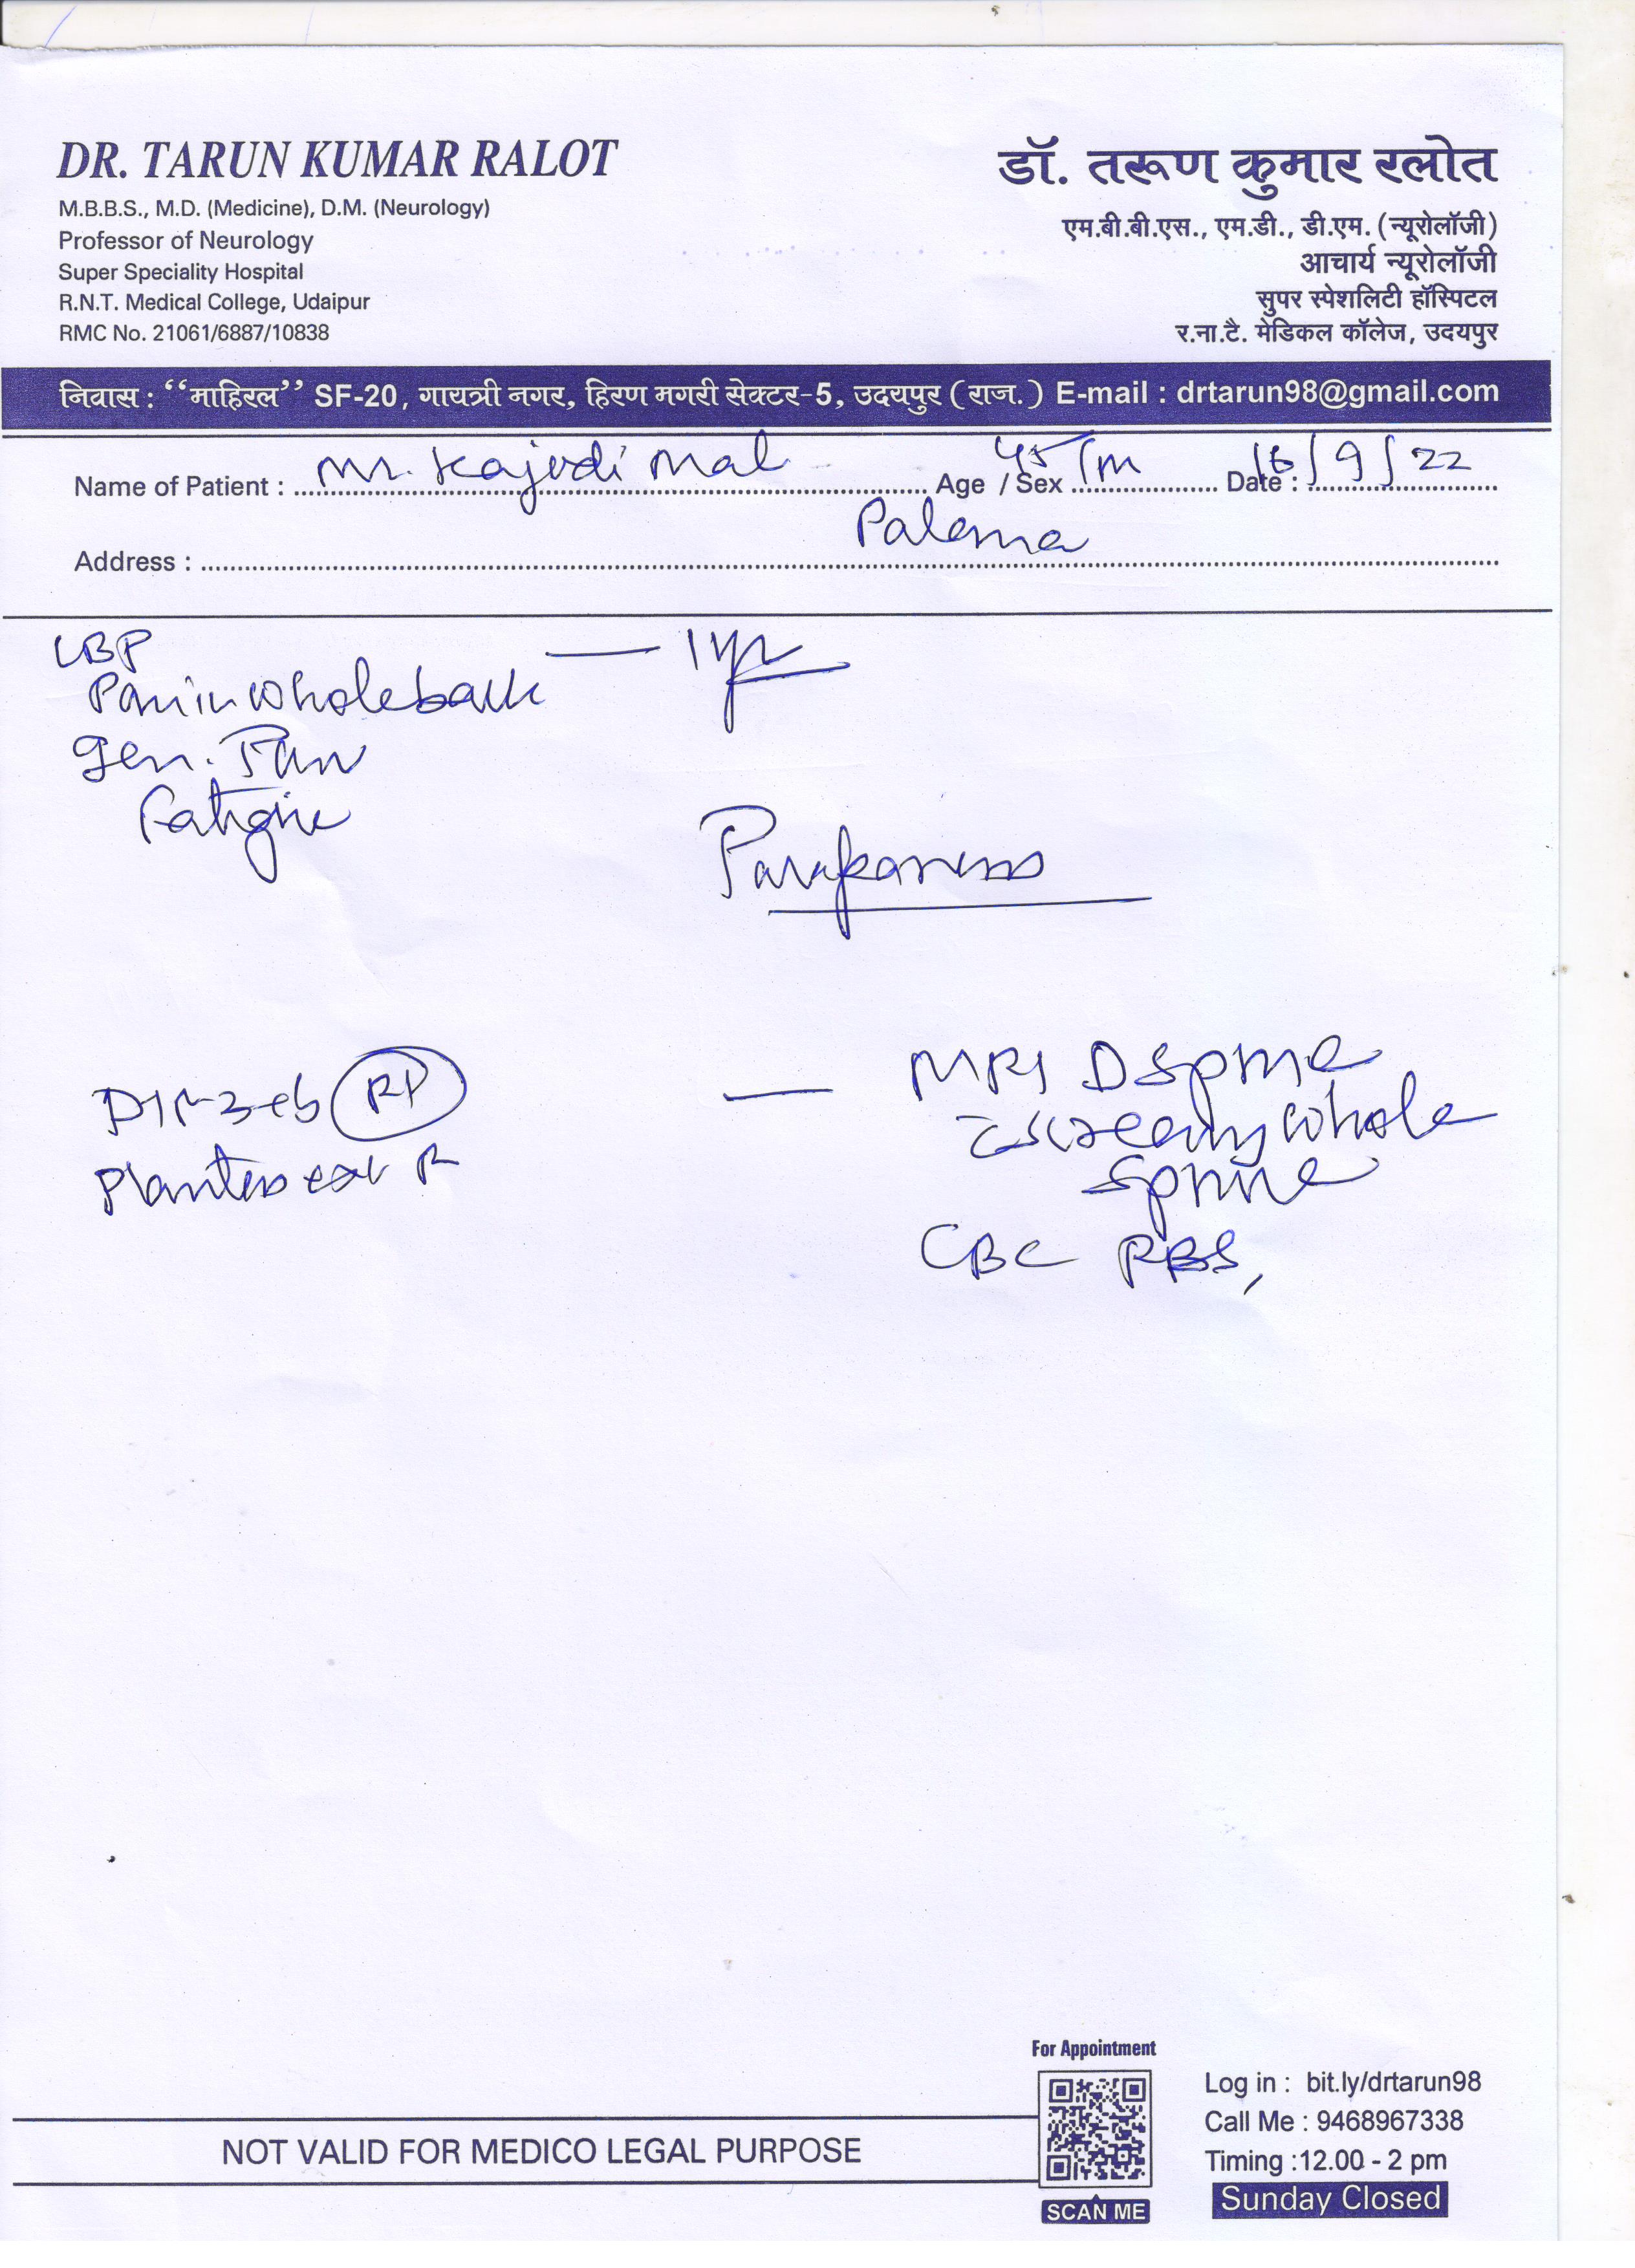 DR. TARUN KUMAR RALOT
M.B.B.S., M.D. (Medicine), D.M. (Neurology)
Professor of Neurology
Super Speciality Hospital
R.N.T. Medical College, Udaipur
RMC No. 21061/6887/10838
डॉ. तरूण कुमार रलोत
एम.बी.बी.एस., एम.डी., डी.एम. (न्यूरोलॉजी)
आचार्य न्यूरोलॉजी
सुपर स्पेशलिटी हॉस्पिटल
र.ना.टै. मेडिकल कॉलेज, उदयपुर
निवास : “माहिरल” SF-20, गायत्री नगर, हिरण मगरी सेक्टर-5, उदयपुर (राज.) E-mail : drtarun98@gmail.com
Name of Patient : Mr. Kajodi Mal Age / Sex 45/m Date : 16/9/22
Address : Palema
LBP
Pain in whole back — 1 yr
gen. Pain
Fatigue
— MRI D Spine
screening whole
Spine
CBC RBS,
For Appointment
SCAN ME
Log in : bit.ly/drtarun98
Call Me : 9468967338
Timing :12.00 - 2 pm
Sunday Closed
NOT VALID FOR MEDICO LEGAL PURPOSE